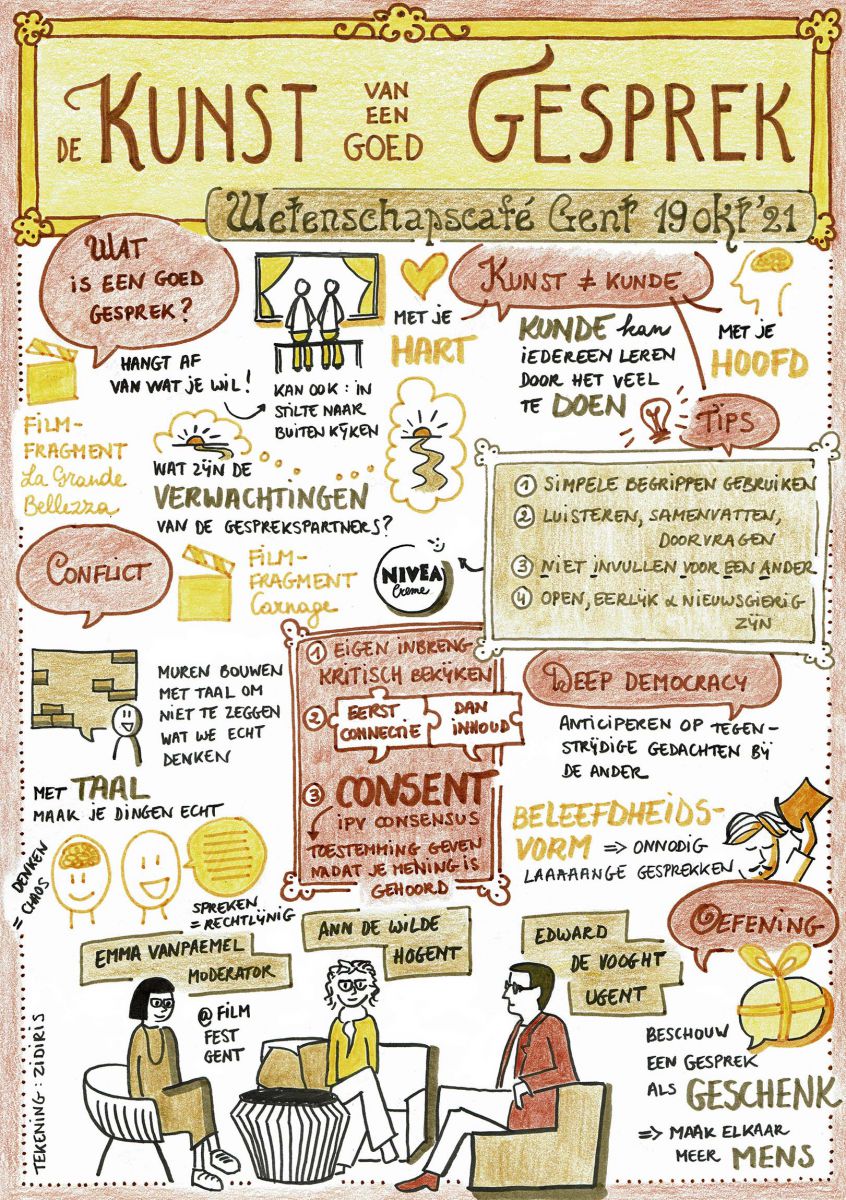 DE KUNST VAN EEN GOED GESPREK
Wetenschapscafé Gent 19 okt '21
WAT
IS EEN GOED
GESPREK?
HANGT AF
VAN WAT JE WIL!
KAN OOK: IN
STILTE NAAR
BUITEN KIJKEN
FILM-
FRAGMENT
La Grande
Bellezza
WAT ZIJN DE
VERWACHTINGEN
VAN DE GESPREKSPARTNERS?
MET JE
HART
KUNST ≠ KUNDE
KUNDE kan
IEDEREEN LEREN
DOOR HET VEEL
TE DOEN
MET JE
HOOFD
TIPS
1 SIMPELE BEGRIPPEN GEBRUIKEN
2 LUISTEREN, SAMENVATTEN,
DOORVRAGEN
3 NIET INVULLEN VOOR EEN ANDER
4 OPEN, EERLIJK & NIEUWSGIERIG
ZIJN
NIVEA
Creme
CONFLICT
FILM-
FRAGMENT
Carnage
MUREN BOUWEN
MET TAAL OM
NIET TE ZEGGEN
WAT WE ECHT
DENKEN
MET TAAL
MAAK JE DINGEN ECHT
DENKEN
= CHAOS
SPREKEN
= RECHTLIJNIG
1 EIGEN INBRENG
KRITISCH BEKIJKEN
2 EERST
CONNECTIE
DAN
INHOUD
3 CONSENT
IPV CONSENSUS
TOESTEMMING GEVEN
NADAT JE MENING IS
GEHOORD
DEEP DEMOCRACY
ANTICIPEREN OP TEGEN-
STRIJDIGE GEDACHTEN BIJ
DE ANDER
BELEEFDHEIDS-
VORM => ONNODIG
LAAAAANGE GESPREKKEN
OEFENING
BESCHOUW
EEN GESPREK
ALS GESCHENK
=> MAAK ELKAAR
MEER MENS
EMMA VANPAEMEL
MODERATOR
@ FILM
FEST
GENT
ANN DE WILDE
HOGENT
EDWARD
DE VOOGHT
UGENT
TEKENING: ZIDIRIS